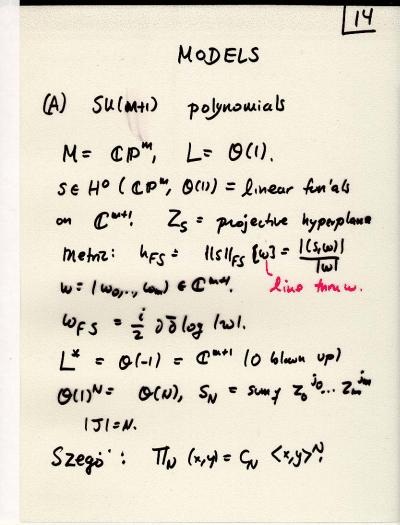 14
MODELS
(A) SU(m+1) polynomials
M = ℂℙᵐ, L = O(1).
s ∈ H⁰(ℂℙᵐ, O(1)) = linear fun'als
on ℂᵐ⁺¹. Z_s = projective hyperplane
Metric: h_FS = ||s||_FS [w] = |(s,w)| / |w|
w = (w₀,.., wₘ) ∈ ℂᵐ⁺¹. line thru w.
ω_FS = i/2 ∂∂̄ log |w|.
L* = O(-1) = ℂᵐ⁺¹ (0 blown up)
O(1)ᴺ = O(N), S_N = sum of z₀^j₀ ... zₘ^jₘ
|J| = N.
Szegö: Π_N (x,y) = C_N <x,y>ᴺ.